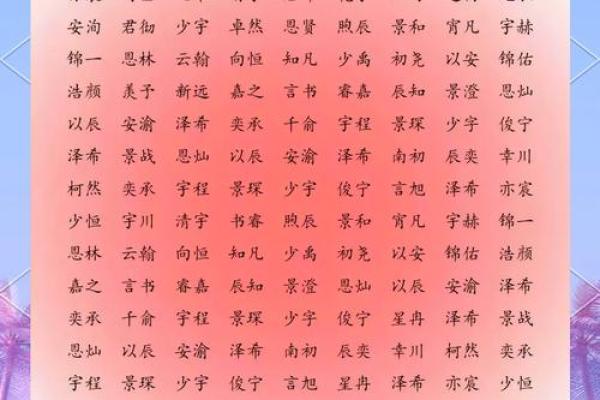 安洵 君彻 少宇 卓然 恩贤 煦辰 景和 宵凡 宇赫
锦一 恩林 云翰 向恒 知凡 少禹 初尧 以安 锦佑
浩颜 羡予 新远 嘉之 言书 睿嘉 辰知 景澄 恩灿
以辰 安渝 泽希 奕承 千俞 宇程 景琛 少宇 俊宁
泽希 景战 恩灿 以辰 安渝 泽希 南初 辰奕 幸川
柯然 奕承 宇程 景琛 少宇 俊宁 言旭 泽希 亦宸
少恒 宇川 清宇 书睿 煦辰 景和 宵凡 宇赫 锦一
恩林 云翰 向恒 知凡 少禹 初尧 以安 锦佑 浩颜
嘉之 言书 睿嘉 辰知 景澄 恩灿 以辰 安渝 泽希
奕承 千俞 宇程 景琛 少宇 俊宁 星冉 泽希 景战
恩灿 以辰 安渝 泽希 南初 辰奕 幸川 柯然 奕承
宇程 景琛 少宇 俊宁 言旭 星冉 泽希 亦宸 少恒